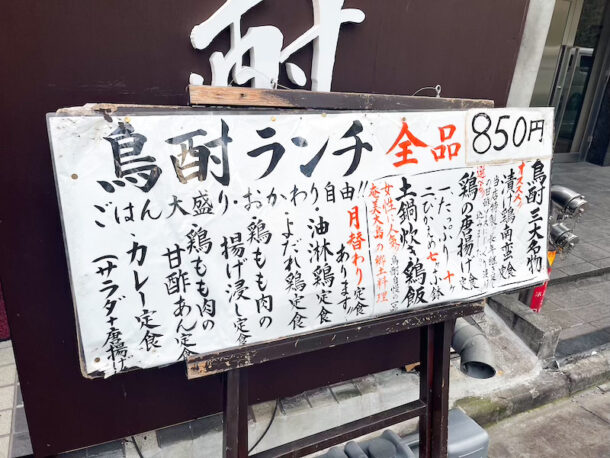 酎
鳥酎ランチ 全品 850円
ごはん大盛り・おかわり自由!!
鳥酎 三大名物
オススメ
漬け鶏南蛮定食
鶏の唐揚げ定食
一、たっぷり
二、ひじめ七、小鉢
土鍋炊き鶏飯
女性に人気
奄美大島の郷土料理
月替わり定食
あります!!
油淋鶏定食
よだれ鶏定食
鶏もも肉の
揚げ浸し定食
鶏もも肉の
甘酢あん定食
カレー定食
(サラダ+唐揚げ